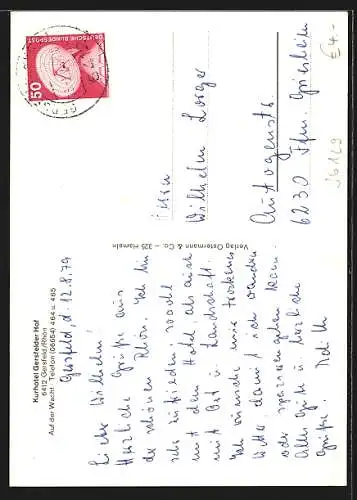 Kurhotel Gersfelder Hof
6412 Gersfeld/Rhön
Auf der Wacht · Telefon (06654) 464 u. 465
Gersfeld, d. 12.8.79
Lieber Wilhelm!
Herzliche Grüße aus
der schönen Rhön. Ich bin
sehr zufrieden, sowohl
mit dem Hotel als auch
mit Ort u. Landschaft.
Ich wünsche mir trockenes
Wetter, damit ich wandern
oder spazieren gehen kann.
Alles Gute u. herzliche
Grüße.
Verlag Ostermann & Co. – 325 Hameln
DEUTSCHE BUNDESPOST
50
Herrn
Wilhelm Lorger
Autogenstr.
6230 Ffm. Griesheim
€ 4.-